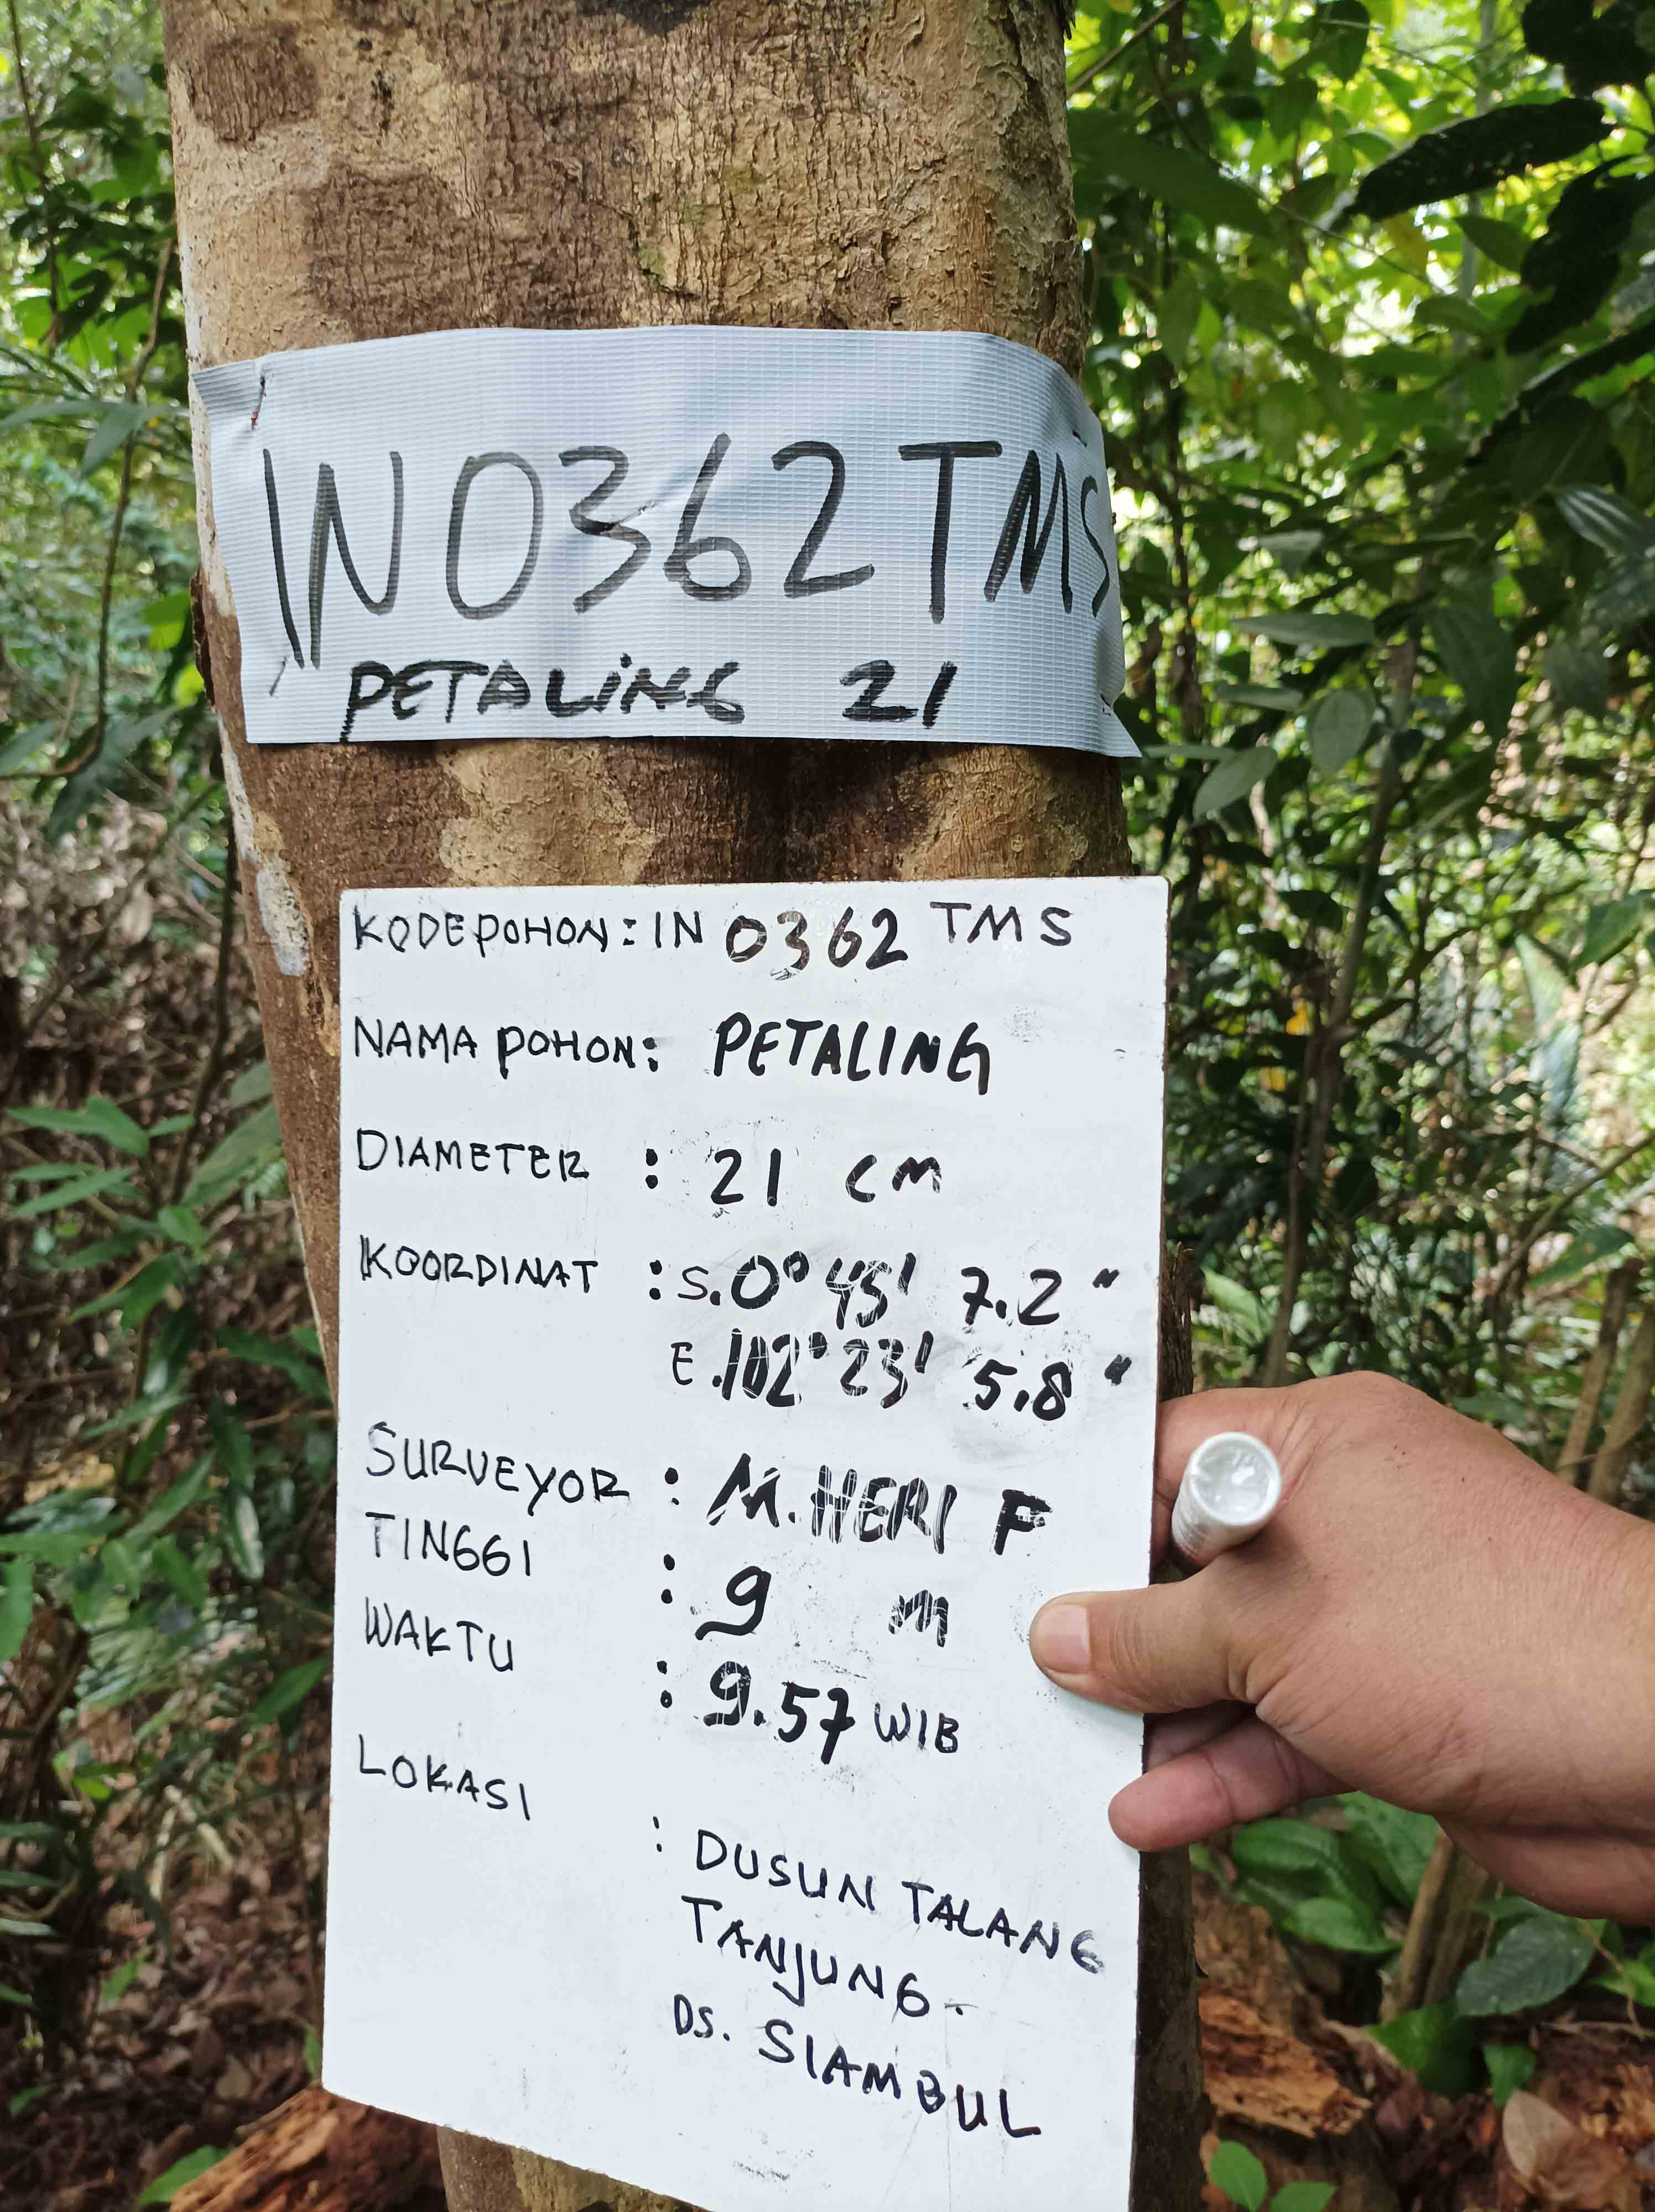 IN0362TMS
PETALiNG 21
KODE POHON : IN 0362 TMS
NAMA POHON : PETALING
DIAMETER : 21 cm
KOORDINAT : S.0° 45' 7.2"
E.102° 23' 5.8"
SURVEYOR : M.HERI F
TINGGI : 9 m
WAKTU : 9.57 WIB
LOKASI : DUSUN TALANG
TANJUNG.
DS. SIAMBUL